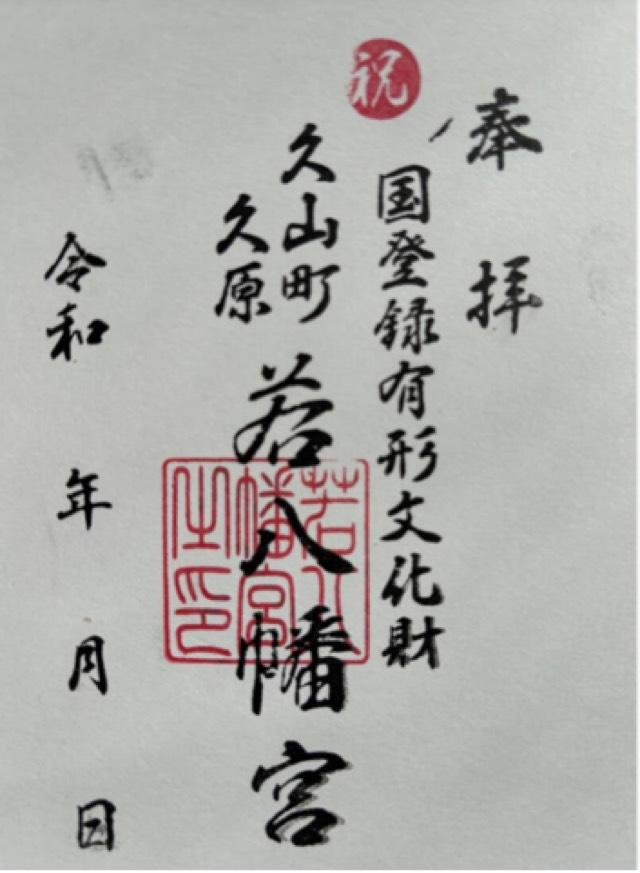 奉拝
祝
国登録有形文化財
久山町
久原
若八幡宮
若八
幡宮
之印
令和 年 月 日